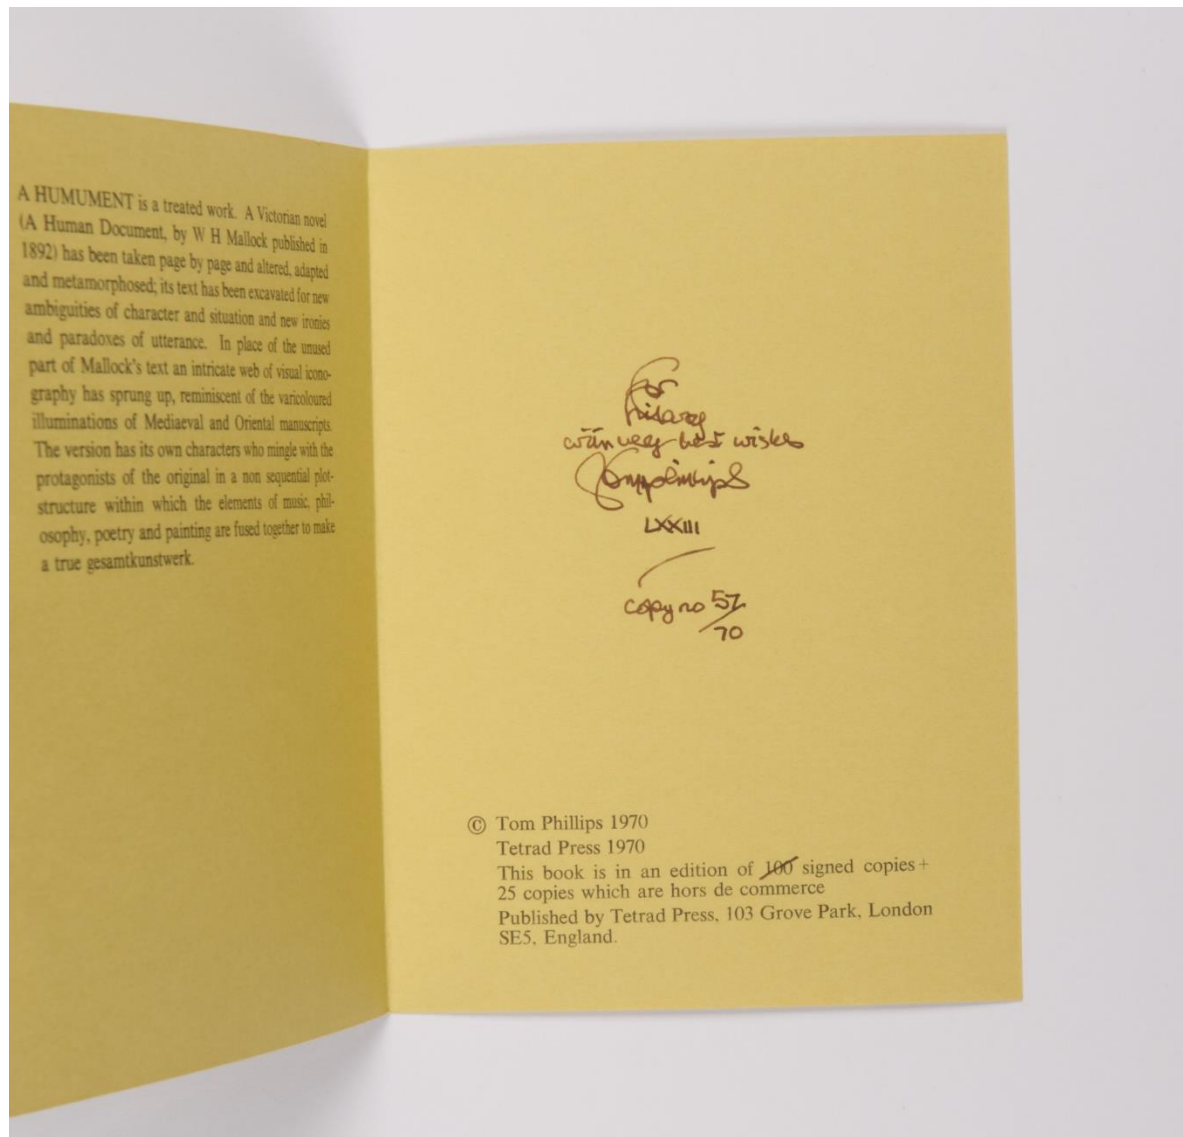 A HUMUMENT is a treated work. A Victorian novel
(A Human Document, by W H Mallock published in
1892) has been taken page by page and altered, adapted
and metamorphosed; its text has been excavated for new
ambiguities of character and situation and new ironies
and paradoxes of utterance. In place of the unused
part of Mallock's text an intricate web of visual icono-
graphy has sprung up, reminiscent of the varicoloured
illuminations of Mediaeval and Oriental manuscripts.
The version has its own characters who mingle with the
protagonists of the original in a non sequential plot-
structure within which the elements of music, phil-
osophy, poetry and painting are fused together to make
a true gesamtkunstwerk.
for
hilary
with very best wishes
Tom Phillips
LXXIII
copy no 57
/70
© Tom Phillips 1970
Tetrad Press 1970
This book is in an edition of 100 signed copies +
25 copies which are hors de commerce
Published by Tetrad Press, 103 Grove Park, London
SE5, England.